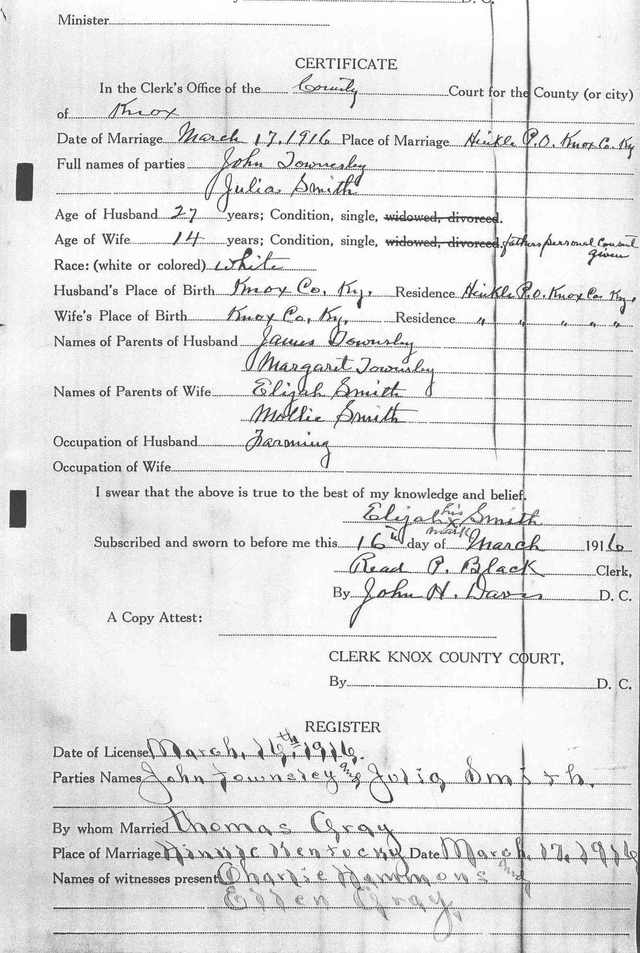 D. C.
Minister
CERTIFICATE
In the Clerk's Office of the County Court for the County (or city)
of Knox
Date of Marriage March 17, 1916 Place of Marriage Hinkle P.O. Knox Co. Ky
Full names of parties John Townsby
Julia Smith
Age of Husband 27 years; Condition, single, widowed, divorced.
Age of Wife 14 years; Condition, single, widowed, divorced. fathers personal consent given
Race: (white or colored) White
Husband's Place of Birth Knox Co, Ky. Residence Hinkle P.O. Knox Co. Ky.
Wife's Place of Birth Knox Co, Ky. Residence " " " " "
Names of Parents of Husband James Townsby
Margaret Townsby
Names of Parents of Wife Elijah Smith
Mollie Smith
Occupation of Husband Farming
Occupation of Wife
I swear that the above is true to the best of my knowledge and belief.
Elijah his x mark Smith
Subscribed and sworn to before me this 16th day of March 1916
Read P. Black Clerk,
By John H. Davis D. C.
A Copy Attest:
CLERK KNOX COUNTY COURT,
By D. C.
REGISTER
Date of License March, 16th, 1916.
Parties Names John Townsley and Julia Smith.
By whom Married Thomas Gray
Place of Marriage Kentucky Date March. 17. 1916
Names of witnesses present Charlie Hammons and
Gray